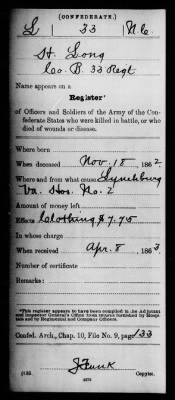 (CONFEDERATE.)
L 33 N.C.
H. Long
Co. B. 33 Regt
Name appears on a
Register*
of Officers and Soldiers of the Army of the Con-
federate States who were killed in battle, or who
died of wounds or disease.
Where born
When deceased Nov. 18, 1862
Where and from what cause Lynchburg
Va. Hos. No. 2
Amount of money left
Effects Clothing $7.75
In whose charge
When received Apr. 8, 1863
Number of certificate
Remarks:
*This register appears to have been compiled in the Adjutant
and Inspector General's Office from returns furnished by Hospi-
tals and by Regimental and Company Officers.
Confed. Arch., Chap. 10, File No. 9, page 133
J Funk
Copyist.